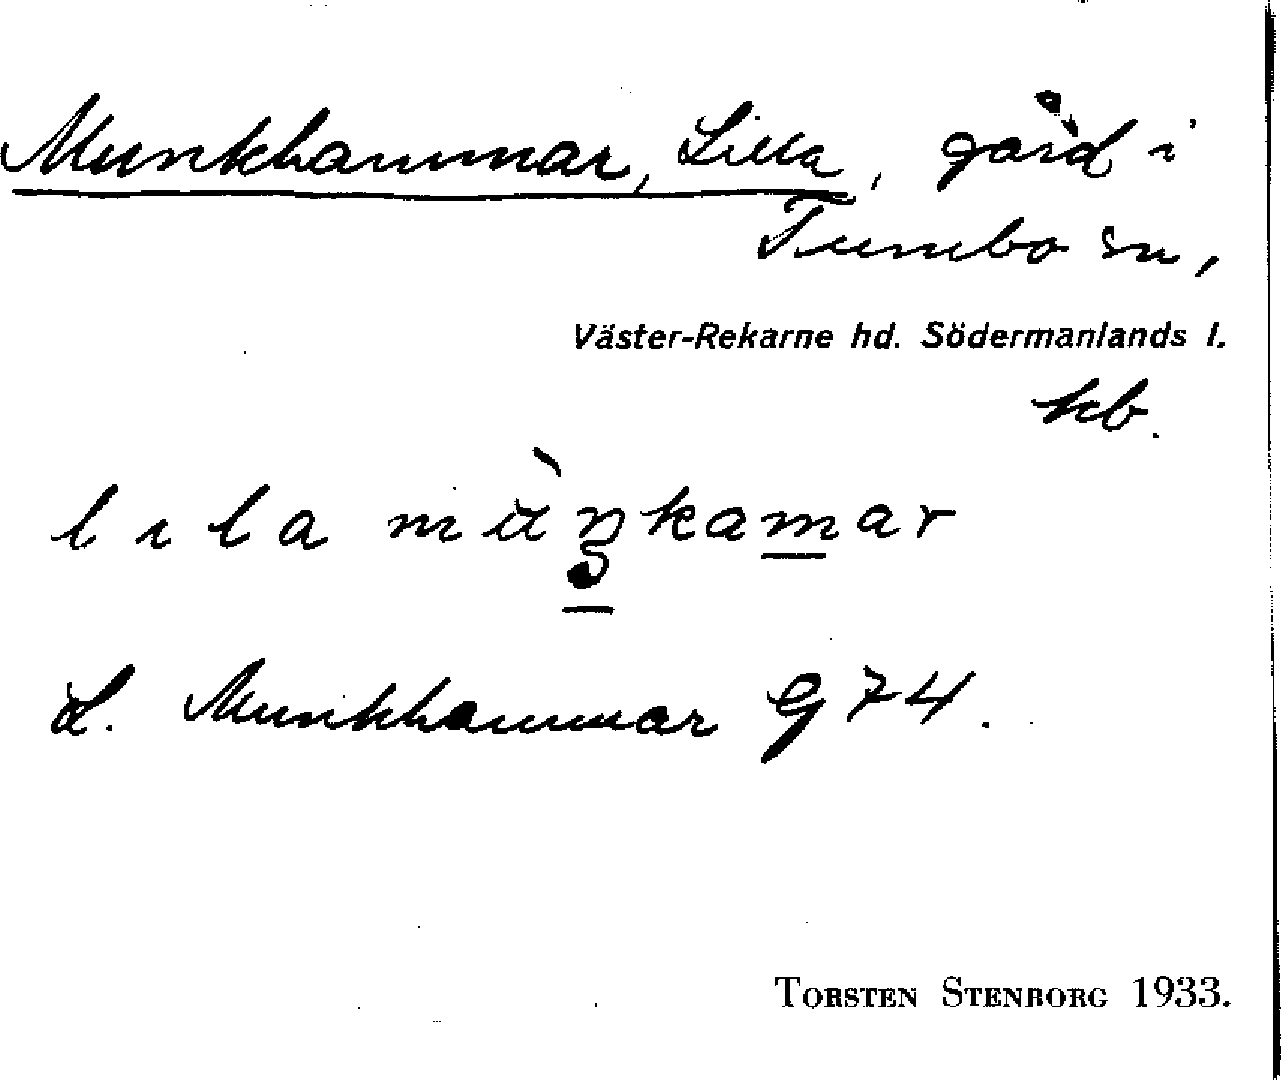 Munkhammar, Lilla, gård i
Tumbo sn,
Väster-Rekarne hd. Södermanlands l.
kb.
lıla mùŋkamar
L. Munkhammar G 74.
TORSTEN STENBORG 1933.